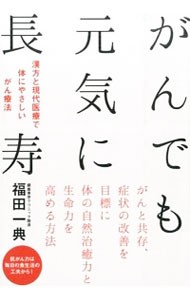 がんでも
元気に
長寿
漢方と現代医療で
体にやさしい
がん療法
がんと共存、
症状の改善を
目標に
体の自然治癒力と
生命力を
高める方法
福田一典
脱がん力は
毎日の食生活の
工夫から!